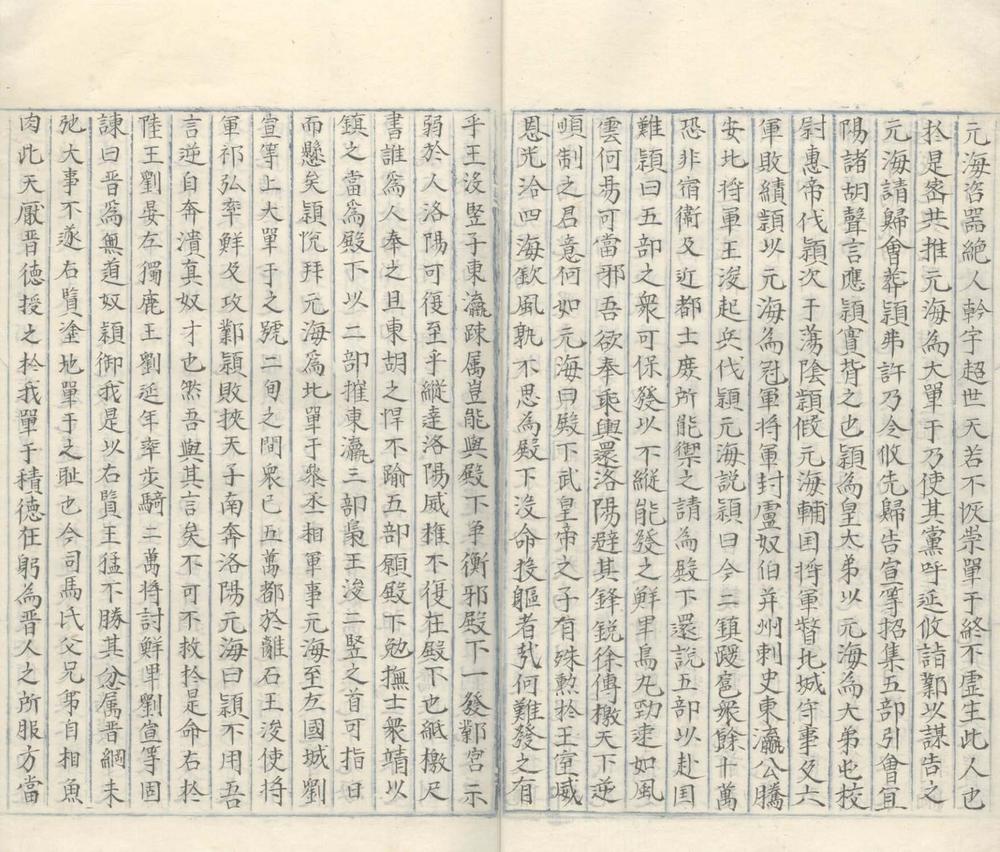 元海咨器絶人幹宇超世天若不恢崇單于終不虛生此人也
扵是宻共推元海為大單于乃使其黨呼延攸詣鄴以謀告之
元海請歸會葬穎弗許乃令攸先歸告宣等招集五部引會宜
陽諸胡聲言應穎實背之也穎為皇太弟以元海為太弟屯校
尉惠帝伐穎次于蕩陰穎假元海輔国将軍督北城守事及六
軍敗績穎以元海為冠軍将軍封盧奴伯并州刺史東瀛公騰
安北将軍王浚起兵伐穎元海説穎曰今二鎮跋扈衆餘十萬
恐非宿衛及近都士庻所能禦之請為殿下還説五部以赴国
難穎曰五部之衆可保發以不縦能發之鮮卑烏丸勁速如風
雲何易可當邪吾欲奉乘輿還洛陽避其鋒鋭徐傳檄天下逆
順制之君意何如元海曰殿下武皇帝之子有殊勲扵王室威
恩光洽四海欽風孰不思為殿下沒命投軀者㢤何難發之有
乎王浚竪子東瀛踈属豈能與殿下争衡邪殿下一發鄴宮示
弱於人洛陽可復至乎縱達洛陽威權不復在殿下也紙檄尺
書誰為人奉之且東胡之悍不踰五部願殿下勉撫士衆靖以
鎮之當為殿下以二部摧東瀛三部梟王浚二竪之首可指日
而懸矣穎恱拜元海為北單于叅丞相軍事元海至左國城劉
宣等上大單于之號二旬之間衆已五萬都於離石王浚使将
軍祁弘率鮮及攻鄴穎敗挾天子南奔洛陽元海曰穎不用吾
言逆自奔潰真奴才也然吾與其言矣不可不救扵是命右扵
陸王劉晏左獨鹿王劉延年率步騎二萬将討鮮卑劉宣等固
諫曰晋為無道奴隷御我是以右賢王猛不勝其忿属晋綱未
弛大事不遂右賢塗地單于之耻也今司馬氏父兄弟自相魚
肉此天厭晋徳授之扵我單于積徳在躬為晋人之所服方當